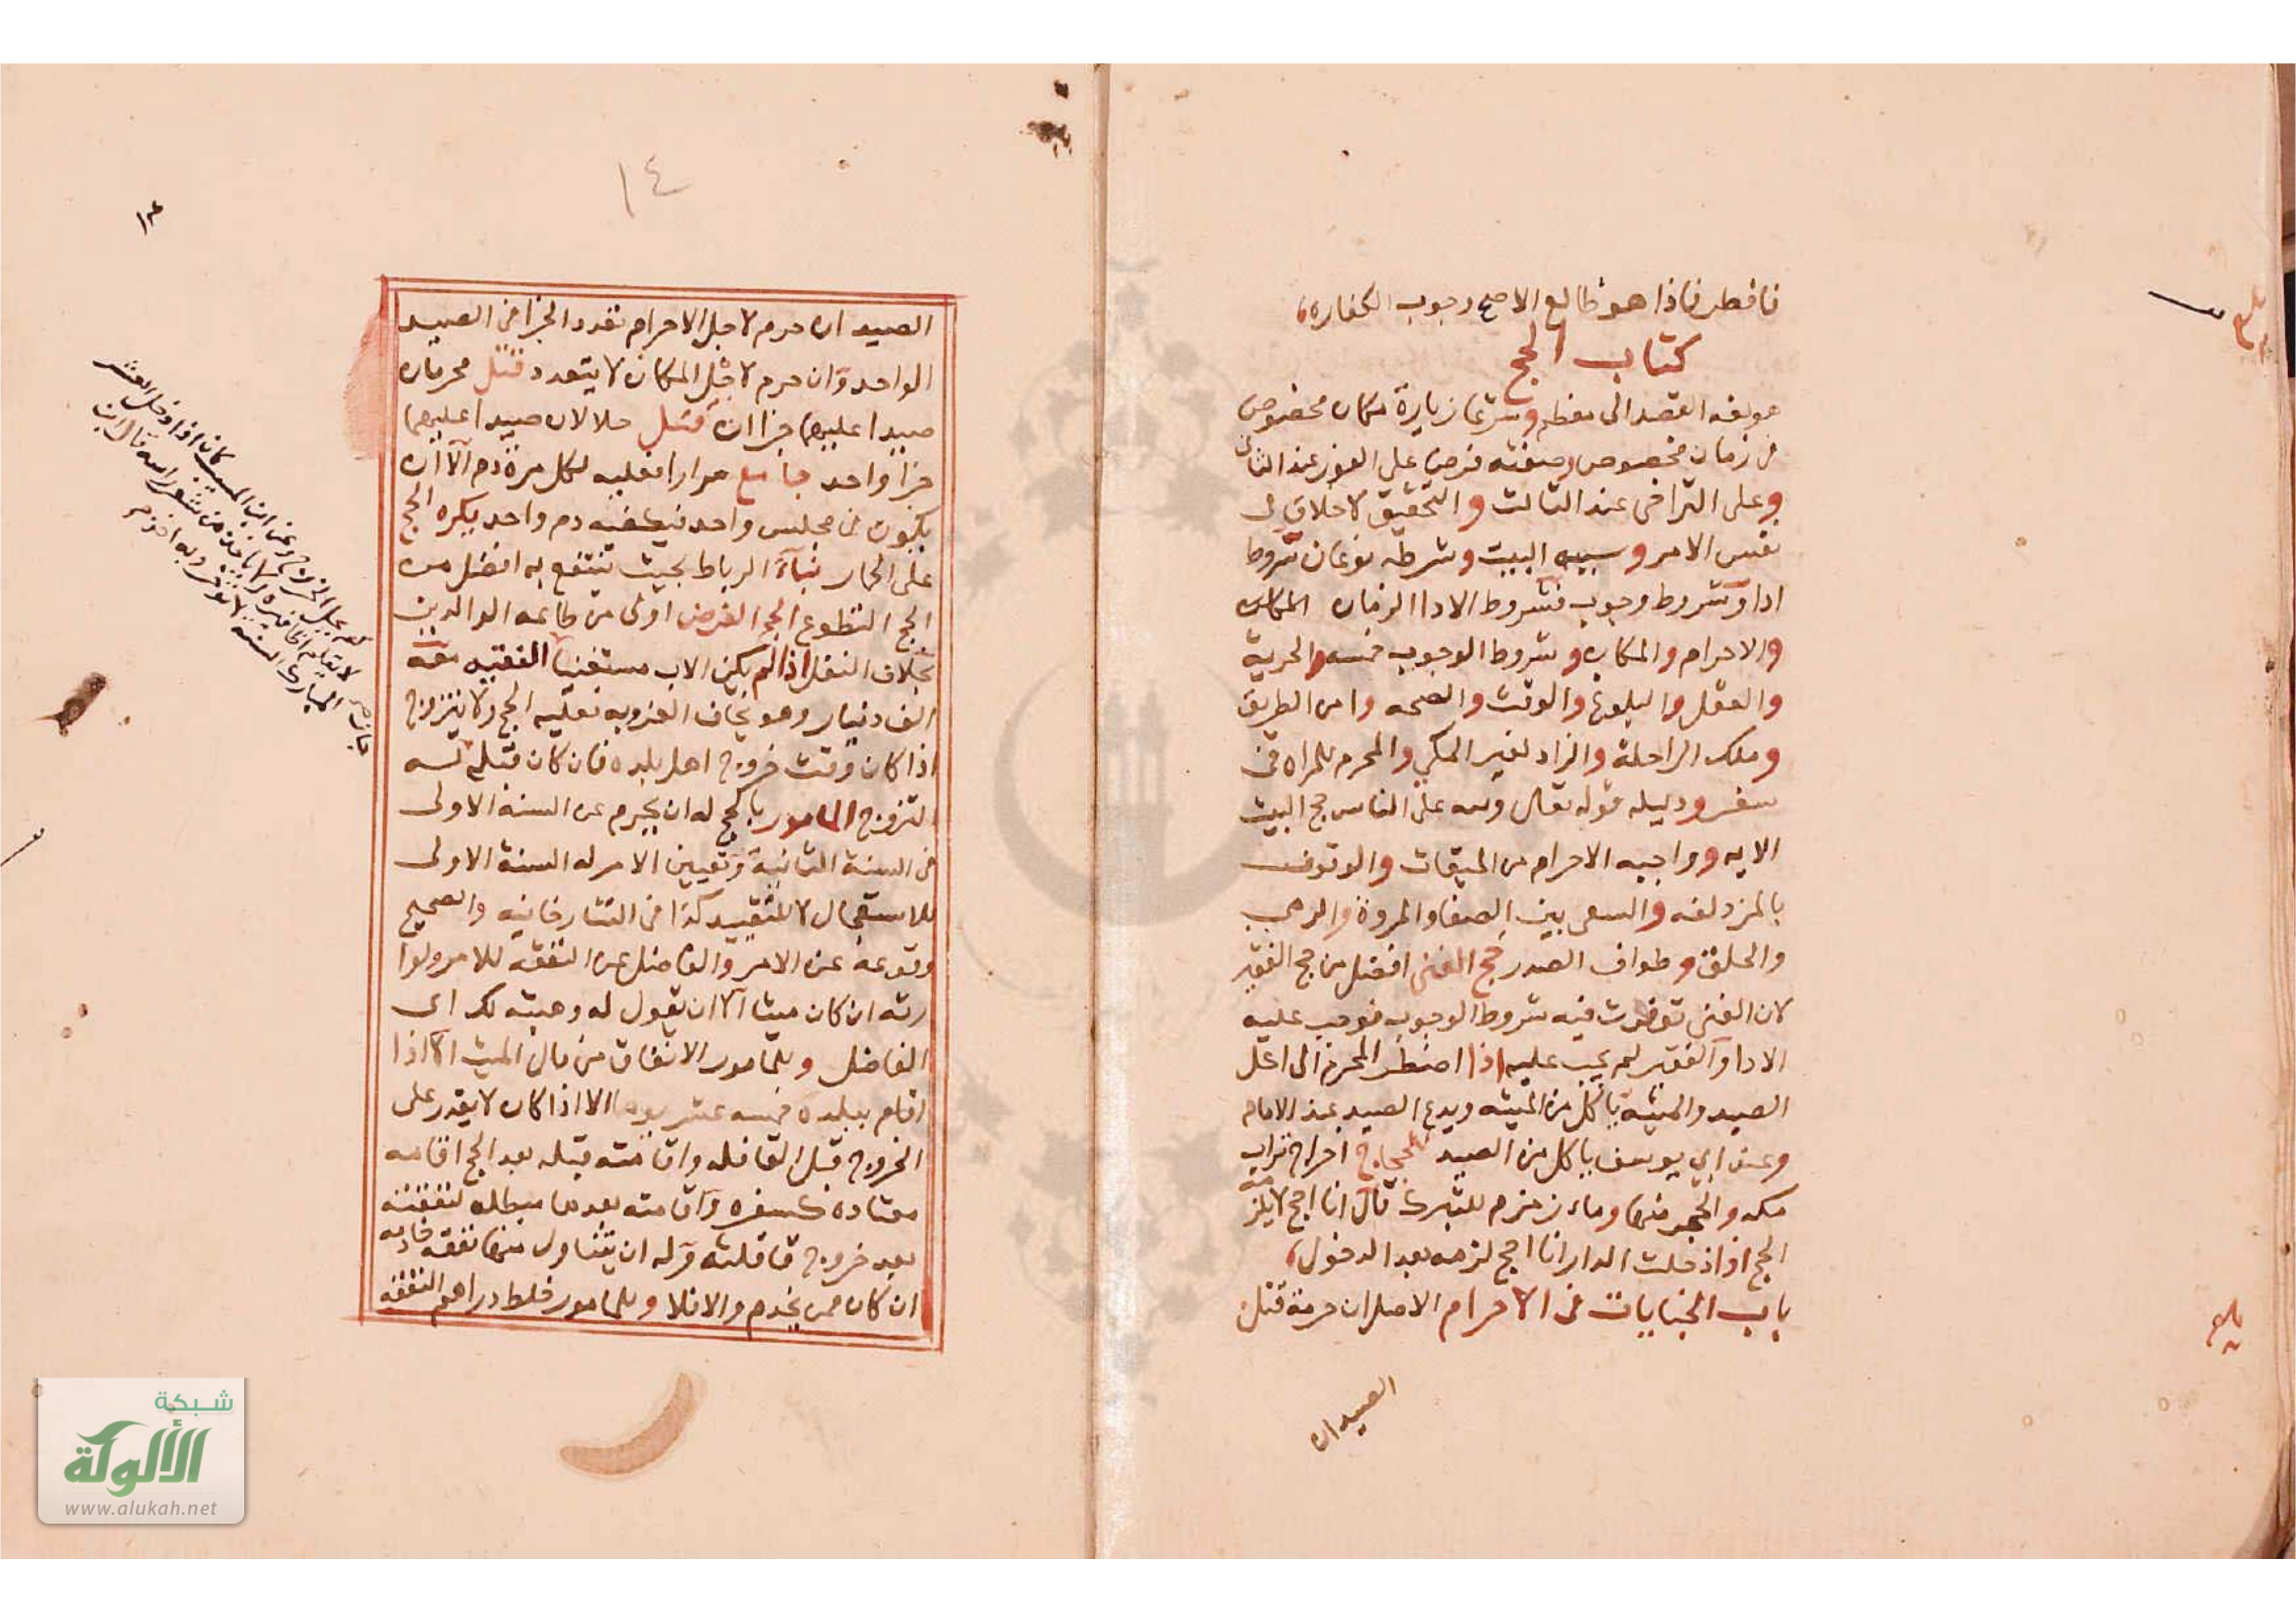 فافطر فاذا هو طالع الاصح وجوب الكفاره،
كتاب الحج
هو لغه القصد الى معظم وشرعا زيارة مكان مخصوص
فى زمان مخصوص وصفته فرض على الفور عند الثانى
وعلى التراخى عند الثالث والتحقيق لا خلاف فى
نفس الامر وسببه البيت وشرطه نوعان شروط
ادا وشروط وجوب فشروط الادا الزمان المكان
والاحرام والمكان وشروط الوجوب خمسه والحرية
والعقل والبلوغ والوقت والصحه وامن الطريق
وملك الراحلة والزاد لغير المكي والمحرم للمراه فى
سفر ودليله قوله تعالى ولله على الناس حج البيت
الايه وواجبه الاحرام من الميقات والوقوف
بالمزدلفه والسعى بين الصفا والمروة والرمى
والحلق وطواف الصدر حج الغنى افضل من حج الفقير
لان الغنى توفرت فيه شروط الوجوب فوجب عليه
الادا والفقير لم يجب عليه اذا اضطر المحرم الى اكل
الصيد والميته ياكل من الميته ويدع الصيد عند الامام
وعند ابي يوسف ياكل من الصيد للحجاج اخراج تراب
مكه والحجر منها وماء زمزم للتبرك قال انا احج لا يلزمه
الحج اذا دخلت الدار انا احج لزمه بعد الدخول،
باب الجنايات فى الاحرام الاصل ان حرمة قتل
الصيد ان
١٤
١٤
الصيد ان حرم لاجل الاحرام تعدد الجزا فى الصيد
الواحد وان حرم لاجل المكان لا يتعدد قتل محرمان
صيدا عليهما جزاان قتل حلالان صيدا عليهما
جزا واحد جامع مرارا فعليه لكل مرة دم الا ان
يكون فى مجلس واحد فيكفيه دم واحد يكره الحج
على الحمار بناء الرباط بحيث ينتفع به افضل من
الحج التطوع الحج الفرض اولى من طاعه الوالدين
بخلاف النفل اذا لم يكن الاب مستغنيا الفقيه معه
الف دينار وهو يخاف العزوبه فعليه الحج ولا يتزوج
اذا كان وقت خروج اهل بلده فان كان قبله له
التزوج المامور بالحج له ان يحرم عن السنة الاولى
فى السنة الثانية وتعيين الامر له السنة الاولى
للاستعجال لا للتقييد كذا فى التتارخانيه والصحيح
وقوعه عن الامر والفاضل من النفقه للامر ولوا
رثه ان كان ميتا الا ان يقول له وهبته لك اى
الفاضل وللمامور الانفاق من مال الميت الا اذا
اقام ببلدة خمسه عشر يوما الا اذا كان لا يقدر على
الخروج قبل القافله واقامته قبله بعد الحج اقامه
معتاده كسفره واقامته بعدها مبطله لنفقته
بعد خروج قافلته وله ان يتناول منها نفقه خادمه
ان كان ممن يخدم والا فلا وللمامور خلط دراهم النفقه
وعن ابن المسيب كان اذا دخل العشر
لا يقلم اظافيره ولا ياخذ من شعر راسه قال ابن
المبارك السنه لا توخر وبه
شبكة
الألوكة
www.alukah.net